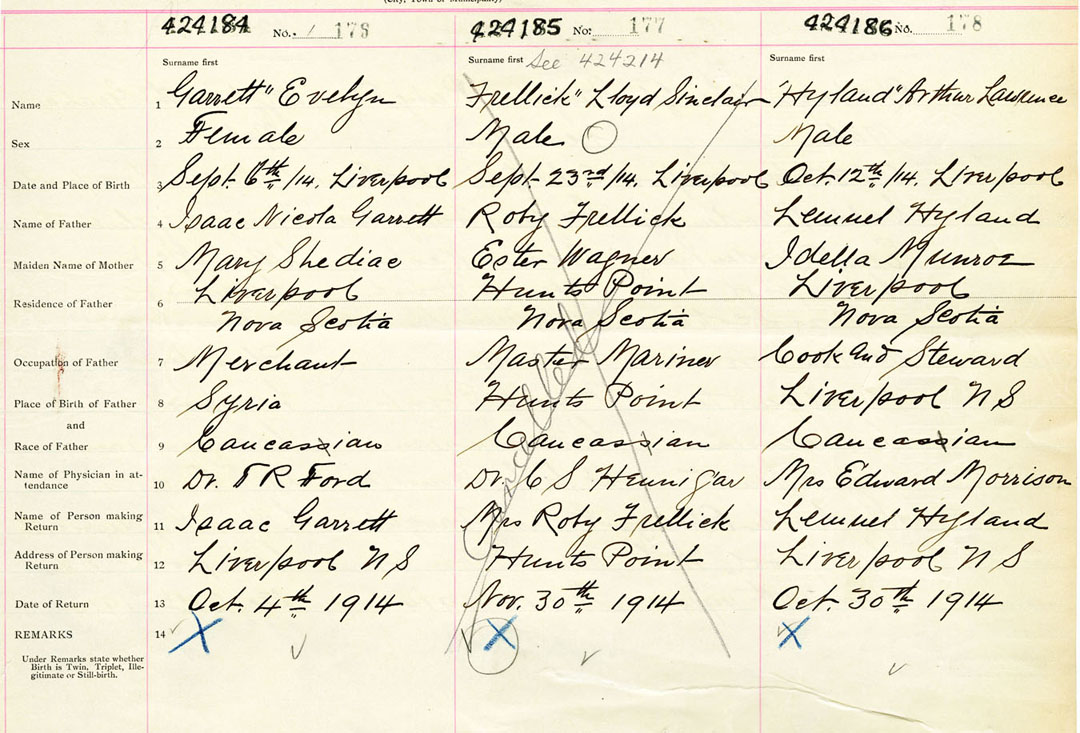 (City, Town or Municipality)
424184 No. 176 424185 No. 177 424186 No. 178
Surname first Surname first See 424214 Surname first
Name 1 Garrett" Evelyn Frellick" Lloyd Sinclair Hyland" Arthur Lawrence
Sex 2 Female Male Male
Date and Place of Birth 3 Sept. 6th /14. Liverpool Sept. 23rd /14. Liverpool Oct. 12th /14. Liverpool
Name of Father 4 Isaac Nicola Garrett Roby Frellick Lemuel Hyland
Maiden Name of Mother 5 Mary Shediac Ester Wagner Idella Munroe
Residence of Father 6 Liverpool Hunts Point Liverpool
Nova Scotia Nova Scotia Nova Scotia
Occupation of Father 7 Merchant Master Mariner Cook and Steward
Place of Birth of Father 8 Syria Hunts Point Liverpool N S
and
Race of Father 9 Caucassian Caucassian Caucassian
Name of Physician in at-
tendance 10 Dr. T R Ford Dr. C S Hennigar Mrs Edward Morrison
Name of Person making
Return 11 Isaac Garrett Mrs Roby Frellick Lemuel Hyland
Address of Person making
Return 12 Liverpool N S Hunts Point Liverpool N S
Date of Return 13 Oct. 4th 1914 Nov. 30th 1914 Oct. 30th 1914
REMARKS 14 X X X
Under Remarks state whether
Birth is Twin, Triplet, Ille-
gitimate or Still-birth.
Cancelled